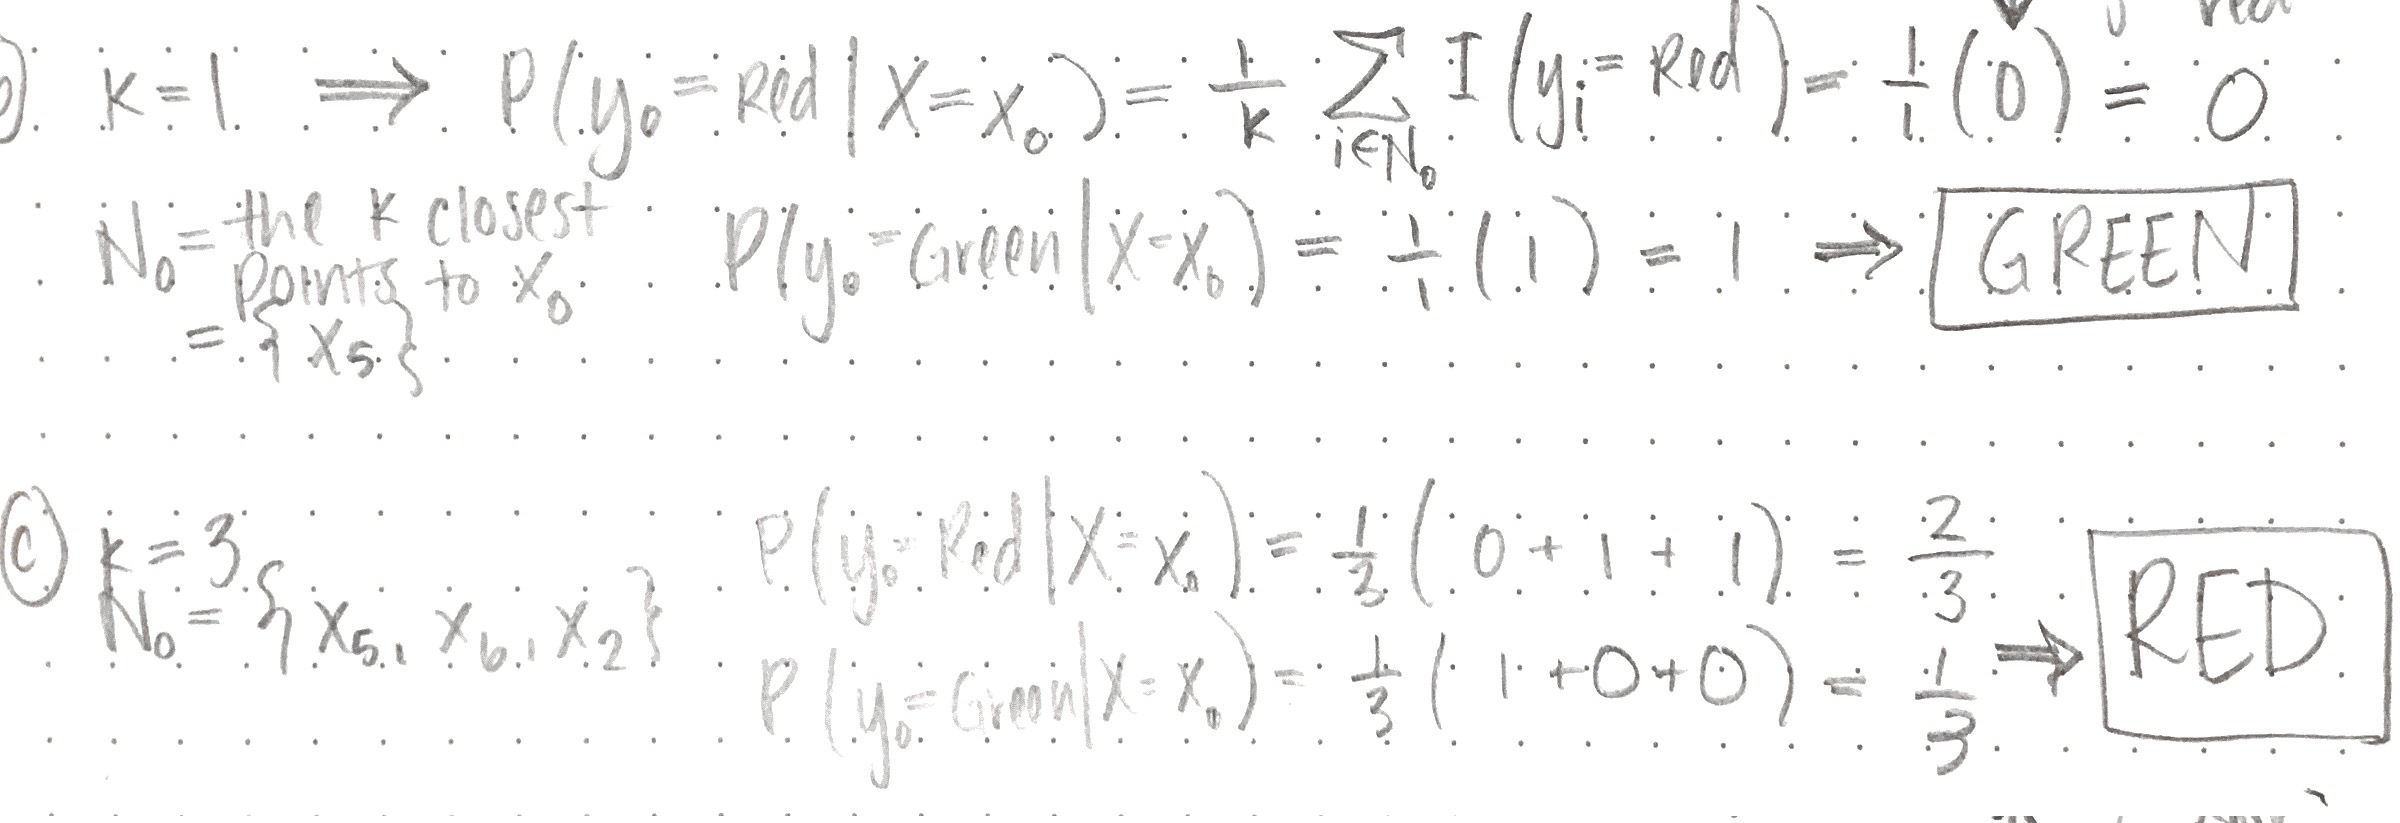 red
K = 1 ⟹ P(y₀ = Red | X = x₀) = 1/K ∑_{i∈N₀} I(yᵢ = Red) = 1/1 (0) = 0
N₀ = the K closest points to x₀
= {x₅}
P(y₀ = Green | X = x₀) = 1/1 (1) = 1 ⟹ GREEN
(c) K = 3
N₀ = {x₅, x₆, x₂}
P(y₀ = Red | X = x₀) = 1/3 (0 + 1 + 1) = 2/3
P(y₀ = Green | X = x₀) = 1/3 (1 + 0 + 0) = 1/3 ⟹ RED